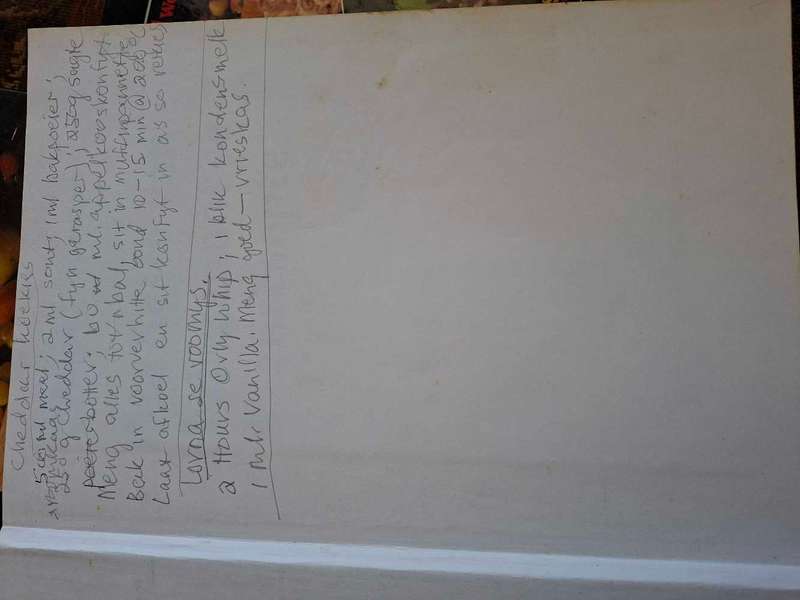 Cheddar koekies
500 ml meel; 2 ml sout; 1 ml bakpoeier;
250 g Cheddar (fyn gerasper); 250g sagte
botter; 60 ml appelkooskonfyt
Meng alles tot 'n bal, sit in muffinpannetjie
Bak in voorverhitte oond 10-15 min @ 200°C
Laat afkoel en sit konfyt in as so verkies
Lorna se roomys.
2 Hours Orly Whip; 1 blik kondensmelk
1 mlr Vanilla. Meng goed — vrieskas.